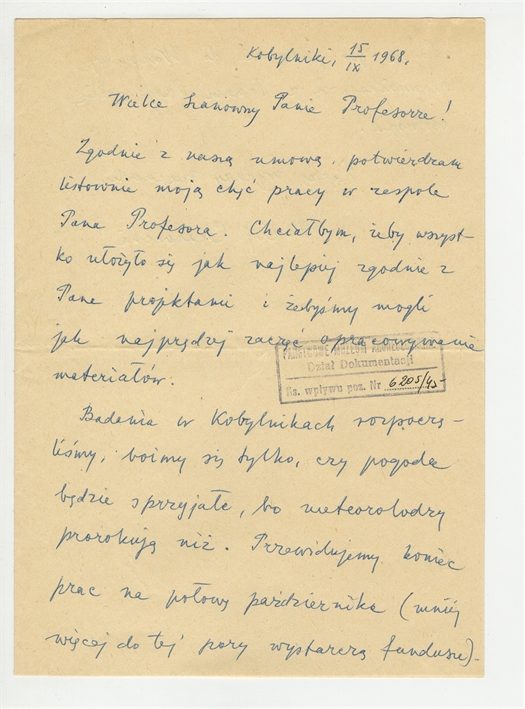 Kobylniki, 15/IX 1968.
Wielce Szanowny Panie Profesorze!
Zgodnie z naszą umową, potwierdzam
listownie moją chęć pracy w zespole
Pana Profesora. Chciałbym, żeby wszyst-
ko ułożyło się jak najlepiej zgodnie z
Pana projektami i żebyśmy mogli
jak najprędzej zacząć opracowywanie
materiałów.
PAŃSTWOWE MUZEUM
Dział Dokumentacji
Ks. wpływu poz. Nr 6205/45
Badania w Kobylnikach rozpoczę-
liśmy, boimy się tylko, czy pogoda
będzie sprzyjała, bo meteorolodzy
prorokują niż. Przewidujemy koniec
prac na połowę października (mniej
więcej do tej pory wystarczą fundusze).